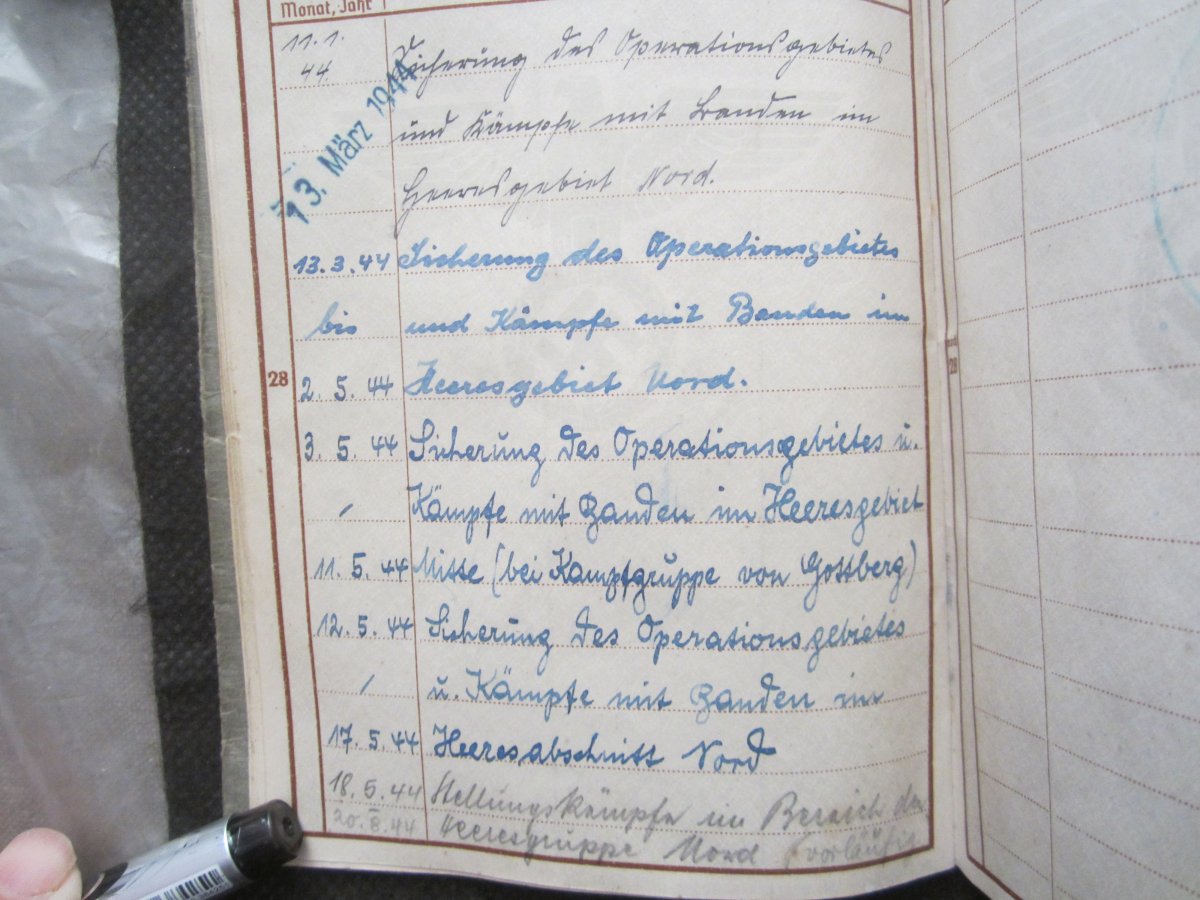 Monat, Jahr
11.1. Sicherung des Operationsgebietes
44
13. März 1944
und Kämpfe mit Banden im
Heeresgebiet Nord.
13.3.44 Sicherung des Operationsgebietes
bis und Kämpfe mit Banden im
28
2. 5. 44 Heeresgebiet Nord.
28
3. 5. 44 Sicherung des Operationsgebietes u.
Kämpfe mit Banden im Heeresgebiet
11. 5. 44 Mitte (bei Kampfgruppe von Gottberg)
12. 5. 44 Sicherung des Operationsgebietes
u. Kämpfe mit Banden im
17. 5. 44 Heeresabschnitt Nord
18. 5. 44 Stellungskämpfe im Bereich der
20. 8. 44 Heeresgruppe Nord